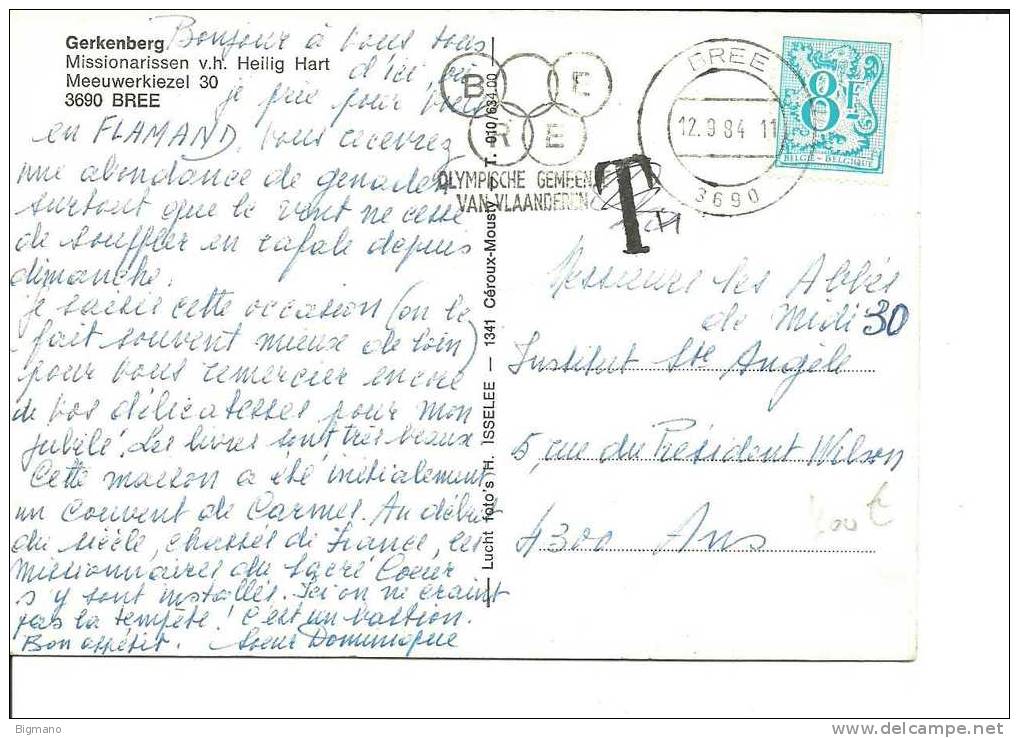 Gerkenberg
Missionarissen v.h. Heilig Hart
Meeuwerkiezel 30
3690 BREE
Bonjour à vous tous
d'ici, où
je prie pour vous
en FLAMAND. Vous recevrez
une abondance de genaden
surtout que le vent ne cesse
de souffler en rafale depuis
dimanche.
je saisis cette occasion (on le
fait souvent mieux de loin)
pour vous remercier encore
de vos délicatesses pour mon
jubilé. Les livres sont très beaux
Cette maison a été initialement
un couvent de Carmel. Au début
du siècle, chassés de France, les
Missionnaires du Sacré Coeur
s'y sont installés. Ici on ne craint
pas la tempête! C'est un bastion.
Bon appétit. Soeur Dominique
Lucht foto's H. ISSELEE — 1341 Céroux-Mousty T. 010/634.00
B E
R E
OLYMPISCHE GEMEEN
VAN VLAANDEREN
BREE
12.9.84 11
3690
T
E 8F
BELGIË-BELGIQUE
Messieurs les Abbés
de Midi 30
Institut Ste Angèle
5, rue du Président Wilson
4300 Ans
Bigmano
www.delcampe.net